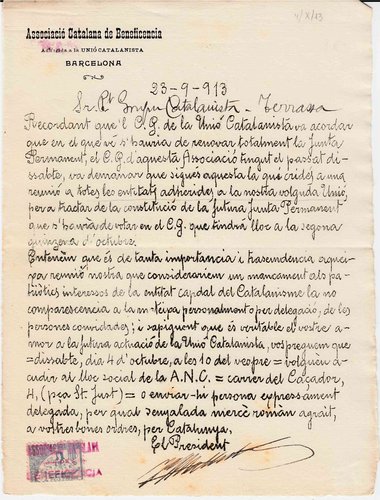 4/X/13
Associació Catalana de Beneficencia
Adherida a la UNIÓ CATALANISTA
BARCELONA
23-9-913
Sr. Pt. Grupu Catalanista - Terrassa
Recordant que'l C.G. de la Unió Catalanista va acordar
que en el que ve s'hauria de renovar totalment la Junta
Permanent, el C.G. d'aquesta Associació tingut el passat di-
ssabte, va demanar que sigués aquesta la que cridés a una
reunió a totes les entitats adherides a la nostra volguda Unió,
per a tractar de la constitució de la futura Junta Permanent
que s'haurà de votar en el C.G. que tindrà lloc a la segona
quinzena d'octubre.
Entenem que és de tanta importancia i trascendencia aquei-
xa reunió nostra que considerariem un mancament als pa-
triòtics interessos de la entitat capdal del Catalanisme la no
comparescencia a la mateixa personalment o per delegació, de les
persones convidades; i sapiguent que és veritable el vostre a-
mor a la futura actuació de la Unió Catalanista, vos preguem que
=dissabte, dia 4 d'octubre, a les 10 del vespre= volguéu a-
cudir al lloc social de la A.N.C. = carrer del Caçador,
4, (pça St. Just) = o enviar-hi persona expressament
delegada, per qual senyalada mercè romàn agraït,
a vostres bones ordres, per Catalunya.
El President